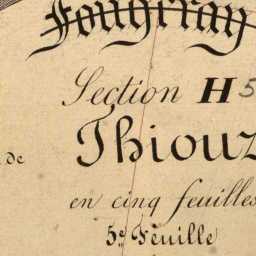 Fougeray
Section H 5
de Thiouz
en cinq feuilles
5e Feuille